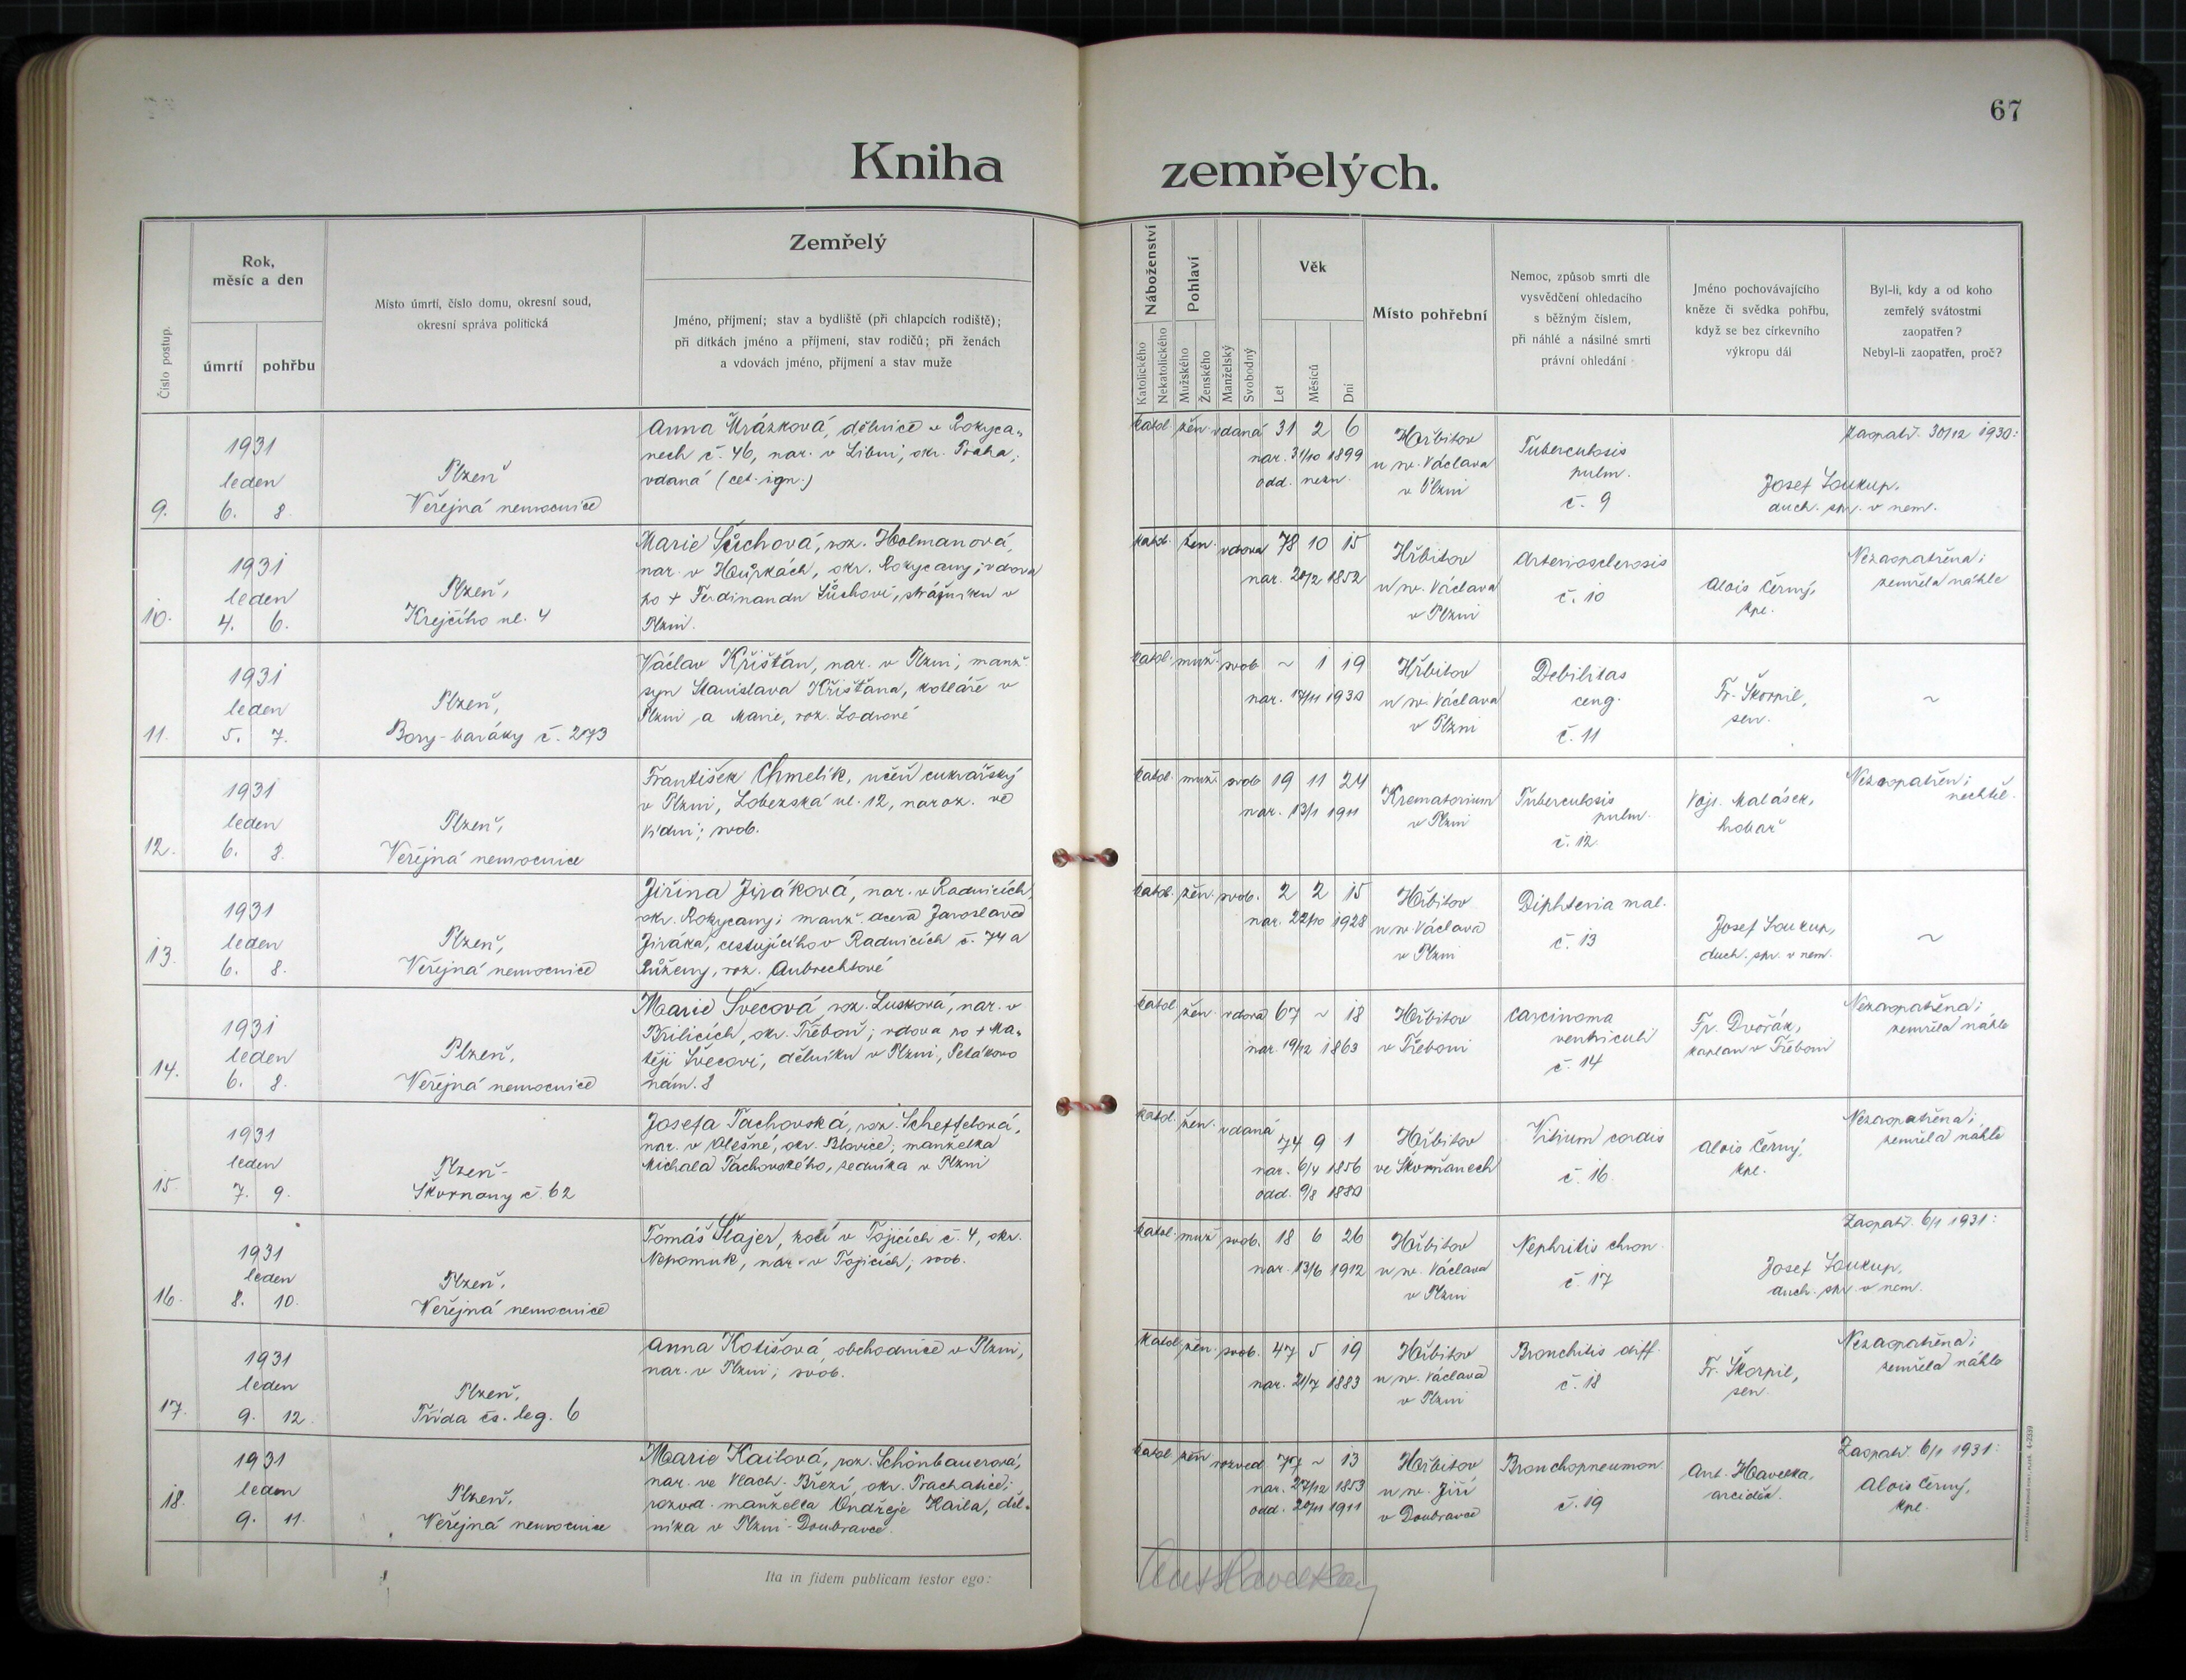 67
Kniha zemřelých.
Číslo postup.
Rok, měsíc a den
úmrtí
pohřbu
Místo úmrtí, číslo domu, okresní soud,
okresní správa politická
Zemřelý
Jméno, příjmení; stav a bydliště (při chlapcích rodiště);
při dítkách jméno a příjmení, stav rodičů; při ženách
a vdovách jméno, příjmení a stav muže
Náboženství
Katolického
Nekatolického
Pohlaví
Mužského
Ženského
Manželský
Svobodný
Věk
Let
Měsíců
Dní
Místo pohřební
Nemoc, způsob smrti dle
vysvědčení ohledacího
s běžným číslem,
při náhlé a násilné smrti
právní ohledání
Jméno pochovávajícího
kněze či svědka pohřbu,
když se bez církevního
výkropu dál
Byl-li, kdy a od koho
zemřelý svátostmi
zaopatřen?
Nebyl-li zaopatřen, proč?
9.
1931
leden
6. 8.
Plzeň
Veřejná nemocnice
Anna Mrázková, dělnice v Rokyca-
nech č. 46, nar. v Libni, okr. Praha;
vdaná (cet. ign.)
katol. žen. vdaná 31 2 6
nar. 31/10 1899
odd. nezn.
Hřbitov
u sv. Václava
v Plzni
Tuberculosis
pulm.
č. 9
Zaopatř. 30/12 1930:
Josef Soukup,
duch. spr. v nem.
10.
1931
leden
4. 6.
Plzeň,
Krejčího ul. 4
Marie Sůchová, roz. Holmanová,
nar. v Hůrkách, okr. Rokycany; vdova
po + Ferdinandu Sůchovi, strážníku v
Plzni.
katol. žen. vdova 78 10 15
nar. 20/2 1852
Hřbitov
u sv. Václava
v Plzni
Arteriosclerosis
č. 10
Alois Černý,
kpl.
Nezaopatřena;
zemřela náhle
11.
1931
leden
5. 7.
Plzeň,
Bory-baráky č. 273
Václav Křišťan, nar. v Plzni; manž.
syn Stanislava Křišťana, kotláře v
Plzni a Marie, roz. Lodrové
katol. muž. svob. ~ 1 19
nar. 17/11 1930
Hřbitov
u sv. Václava
v Plzni
Debilitas
cong.
č. 11
Fr. Škorpil,
sen.
~
12.
1931
leden
6. 8.
Plzeň,
Veřejná nemocnice
František Chmelík, učeň cukrářský
v Plzni, Lobezská ul. 12, naroz. ve
Vídni; svob.
katol. muž. svob. 19 11 24
nar. 13/1 1911
Krematorium
v Plzni
Tuberculosis
pulm.
č. 12.
Vojt. Malásek,
hrobař
Nezaopatřen;
nechtěl.
13.
1931
leden
6. 8.
Plzeň,
Veřejná nemocnice
Jiřina Jiráková, nar. v Radnicích,
okr. Rokycany; manž. dcera Jaroslava
Jiráka, cestujícího v Radnicích č. 74 a
Růženy, roz. Aubrechtové
katol. žen. svob. 2 2 15
nar. 22/10 1928
Hřbitov
u sv. Václava
v Plzni
Diphteria mal.
č. 13
Josef Soukup,
duch. spr. v nem.
~
14.
1931
leden
6. 8.
Plzeň,
Veřejná nemocnice
Marie Švecová, roz. Lusková, nar. v
Břilicích, okr. Třeboň; vdova po + Ma-
těji Švecovi, dělníku v Plzni, Petákovo
nám. 8
katol. žen. vdova 67 ~ 18
nar. 19/12 1863
Hřbitov
v Třeboni
Carcinoma
ventriculi
č. 14
Fr. Dvořák,
kaplan v Třeboni
Nezaopatřena;
zemřela náhle
15.
1931
leden
7. 9.
Plzeň-
Škvrňany č. 62
Josefa Tachovská, roz. Scheffelová,
nar. v Olešné, okr. Blovice; manželka
Michala Tachovského, zedníka v Plzni
katol. žen. vdaná
74 9 1
nar. 6/4 1856
odd. 9/8 1880
Hřbitov
ve Škvrňanech
Vitium cordis
č. 16
Alois Černý,
kpl.
Nezaopatřena;
zemřela náhle
16.
1931
leden
8. 10.
Plzeň,
Veřejná nemocnice
Tomáš Šlajer, kočí v Tojicích č. 4, okr.
Nepomuk, nar. v Tojicích; svob.
katol. muž. svob. 18 6 26
nar. 13/6 1912
Hřbitov
u sv. Václava
v Plzni
Nephritis chron.
č. 17
Zaopatř. 6/1 1931:
Josef Soukup,
duch. spr. v nem.
17.
1931
leden
9. 12.
Plzeň,
Třída čs. leg. 6
Anna Kotišová, obchodnice v Plzni,
nar. v Plzni; svob.
katol. žen. svob. 47 5 19
nar. 21/7 1883
Hřbitov
u sv. Václava
v Plzni
Bronchitis diff.
č. 18
Fr. Škorpil,
sen.
Nezaopatřena;
zemřela náhle
18.
1931
leden
9. 11.
Plzeň,
Veřejná nemocnice
Marie Kailová, roz. Schönbauerová,
nar. ve Vlach. Březí, okr. Prachatice;
rozved. manželka Ondřeje Kaila, děl-
níka v Plzni-Doubravce.
katol. žen. rozved. 77 ~ 13
nar. 27/12 1853
odd. 20/11 1911
Hřbitov
u sv. Jiří
v Doubravce
Bronchopneumon.
č. 19
Ant. Havelka,
arciděk.
Zaopatř. 6/1 1931:
Alois Černý,
kpl.
Ita in fidem publicam testor ego:
Ant Havelka